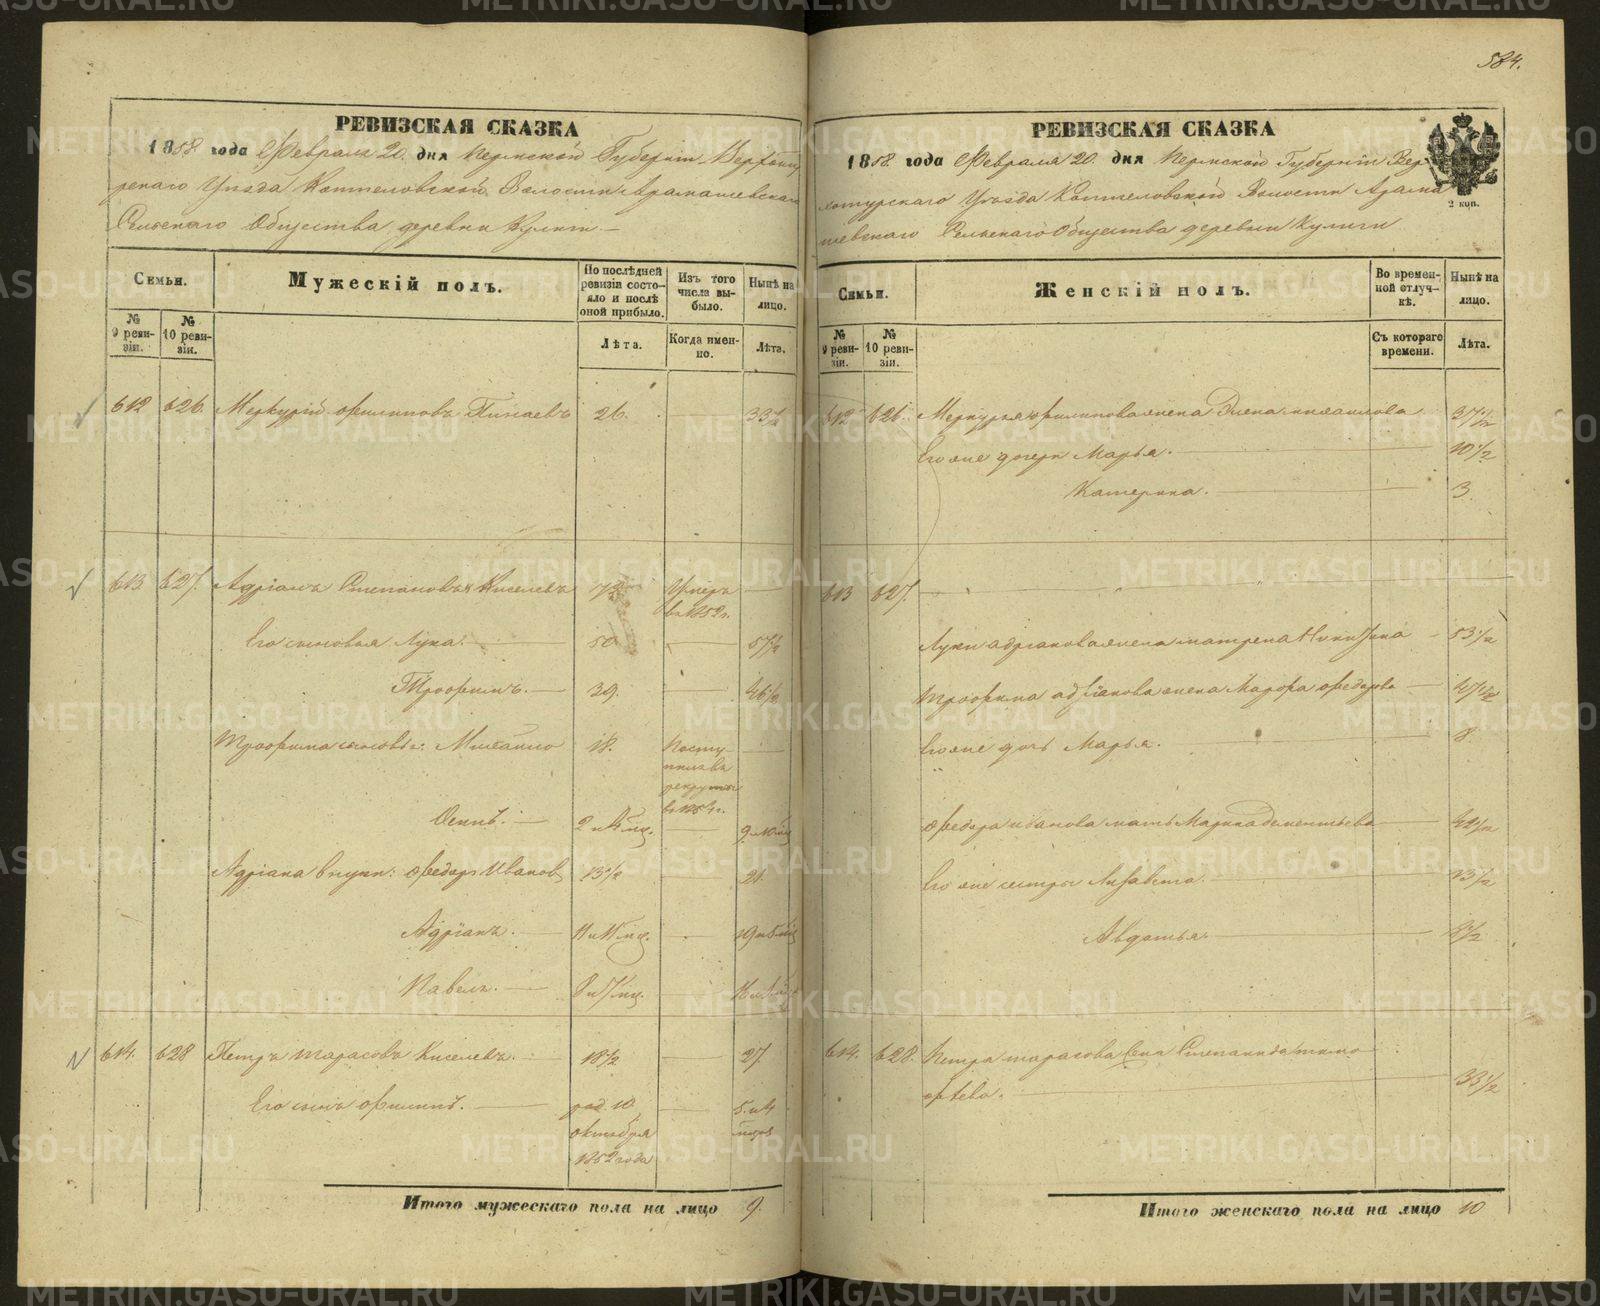 584.
РЕВИЗСКАЯ СКАЗКА
1858 года Февраля 20 дня Пермской Губерніи Верхоту
рскаго Уѣзда Коптеловской Волости Арамашевскаго
Сельскаго Общества деревни Кулиги
Семьи.
Мужескій полъ.
По послѣдней ревизіи состояло и послѣ оной прибыло.
Изъ того числа выбыло.
Нынѣ на лицо.
№ 9 ревизіи.
№ 10 ревизіи.
Лѣта.
Когда именно.
Лѣта.
612 626. Меркурій Филиповъ 26. 33½
613 627. Адріанъ Степановъ Киселевъ 72 Умеръ в 1852 г.
Его сыновья Лука. 50 57½
Трофимъ. 39. 46½
Трофима сыновья: Михайло 18. Поступилъ в рекруты в 1854 г.
Осипъ. 2 и 4 мц.
Адріана внуки: Федоръ Ивановъ 13½ 21
Адріанъ. 11 и 11 мц. 19 и 5 мц
Павелъ. 8 и 7 мц.
614. 628 Петръ Тарасовъ Киселевъ. 18½ 27
Его сынъ Филипъ. род. 10 октября 1852 года 5 и 4 мцов
Итого мужескаго пола на лицо 9.
РЕВИЗСКАЯ СКАЗКА
1858 года Февраля 20 дня Пермской Губерніи Вер
хотурскаго Уѣзда Коптеловской Волости Арама
шевскаго Сельскаго Общества деревни Кулиги
2 коп.
Семьи.
Женскій полъ.
Во временной отлучкѣ.
Нынѣ на лицо.
№ 9 ревизіи.
№ 10 ревизіи.
Съ котораго времени.
Лѣта.
612 626. Меркурья Филипова жена Елена Михайлова 37½
Его же дочери Марья. 10½
Катерина. 3
613 627.
Луки Адріанова жена Матрена Никитина 53½
Трофима Адріанова жена Марфа Федорова 47½
Его же дочь Марья. 8
Федора Иванова мать Марина Дементьева 42½
Его же сестры Лизавета. 13½
Авдотья.
614. 628. Петра Тарасова жена Степанида Тимо
феева. 33½
Итого женскаго пола на лицо 10
METRIKI.GASO-URAL.RU